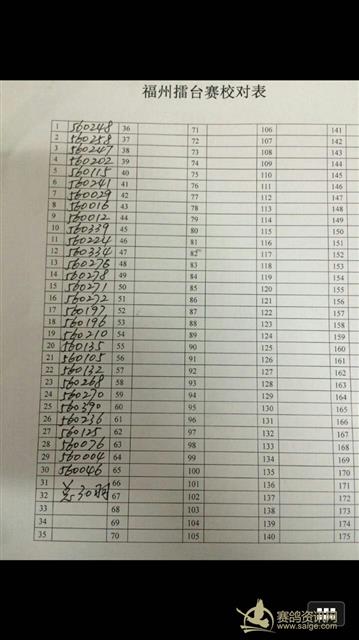 福州擂台赛校对表
1 560248 36 71 106 141
2 560258 37 72 107 142
3 560247 38 73 108 143
4 560202 39 74 109 144
5 560115 40 75 110 145
6 560241 41 76 111 146
7 560029 42 77 112 147
8 560016 43 78 113 148
9 560012 44 79 114 149
10 560339 45 80 115 150
11 560224 46 81 116 151
12 560334 47 82 117 152
13 560276 48 83 118 153
14 560278 49 84 119 154
15 560271 50 85 120 155
16 560272 51 86 121 156
17 560197 52 87 122 157
18 560196 53 88 123 158
19 560210 54 89 124 159
20 560135 55 90 125 160
21 560105 56 91 126 161
22 560132 57 92 127 162
23 560268 58 93 128 163
24 560270 59 94 129 164
25 560390 60 95 130 165
26 560236 61 96 131 166
27 560125 62 97 132 167
28 560076 63 98 133 168
29 560004 64 99 134 169
30 560046 65 100 135 170
31 66 101 136 171
32 共30羽 67 102 137 172
33 68 103 138 173
34 69 104 139 174
35 70 105 140 175
赛鸽资讯网
www.saige.com